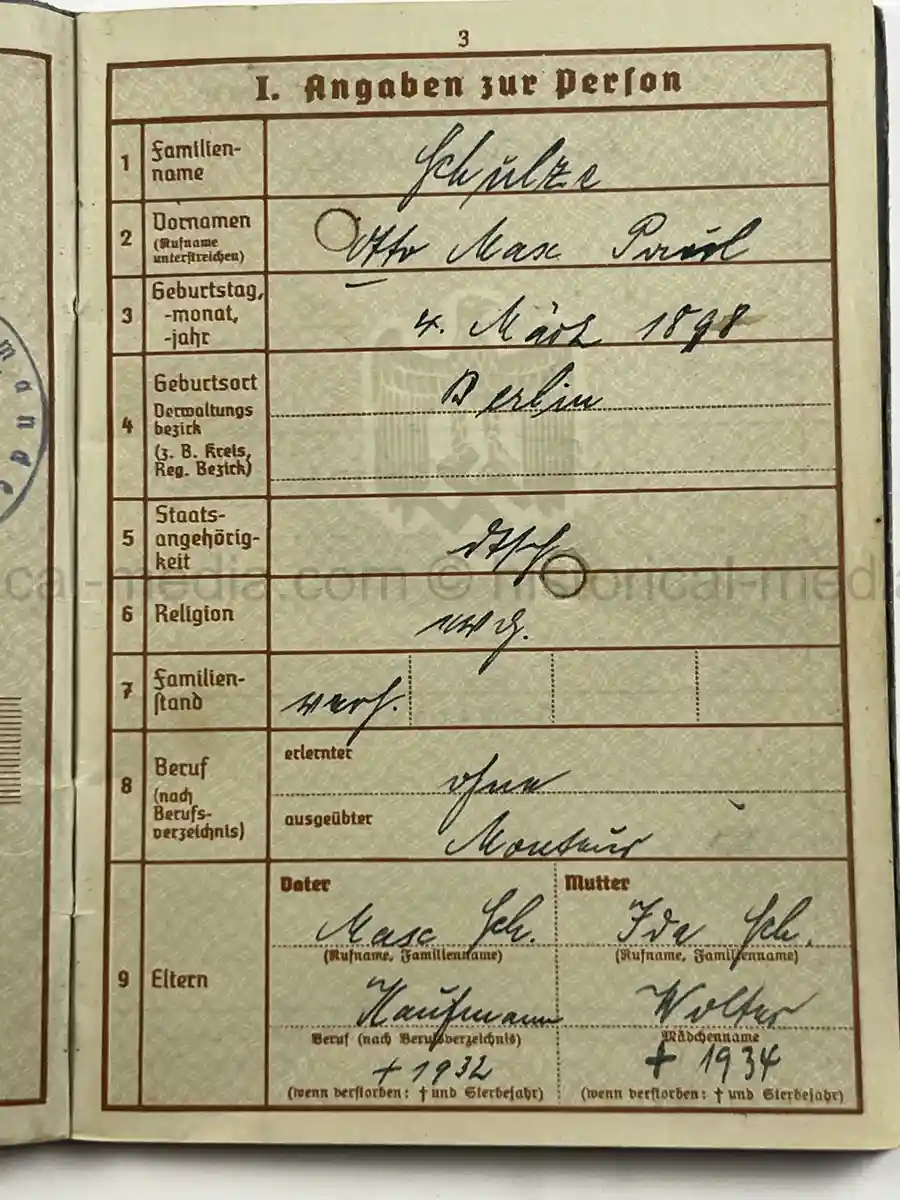 3
I. Angaben zur Person
1 Familien-
name
Schulze
2 Vornamen
(Rufname
unterstreichen)
Otto Max Paul
3 Geburtstag,
-monat,
-jahr
4. März 1898
4 Geburtsort
Verwaltungs
bezirk
(z. B. Kreis,
Reg. Bezirk)
Berlin
5 Staats-
angehörig-
keit
dtsch
cal-media.com © historical-media
6 Religion
7 Familien-
stand
verh.
8 Beruf
(nach
Berufs-
verzeichnis)
erlernter
ohne
ausgeübter
Monteur
9 Eltern
Vater
Max Sch.
(Rufname, Familienname)
Kaufmann
Beruf (nach Berufsverzeichnis)
+ 1932
(wenn verstorben: † und Sterbejahr)
Mutter
Ida Sch.
(Rufname, Familienname)
Wolter
Mädchenname
+ 1934
(wenn verstorben: † und Sterbejahr)
mande